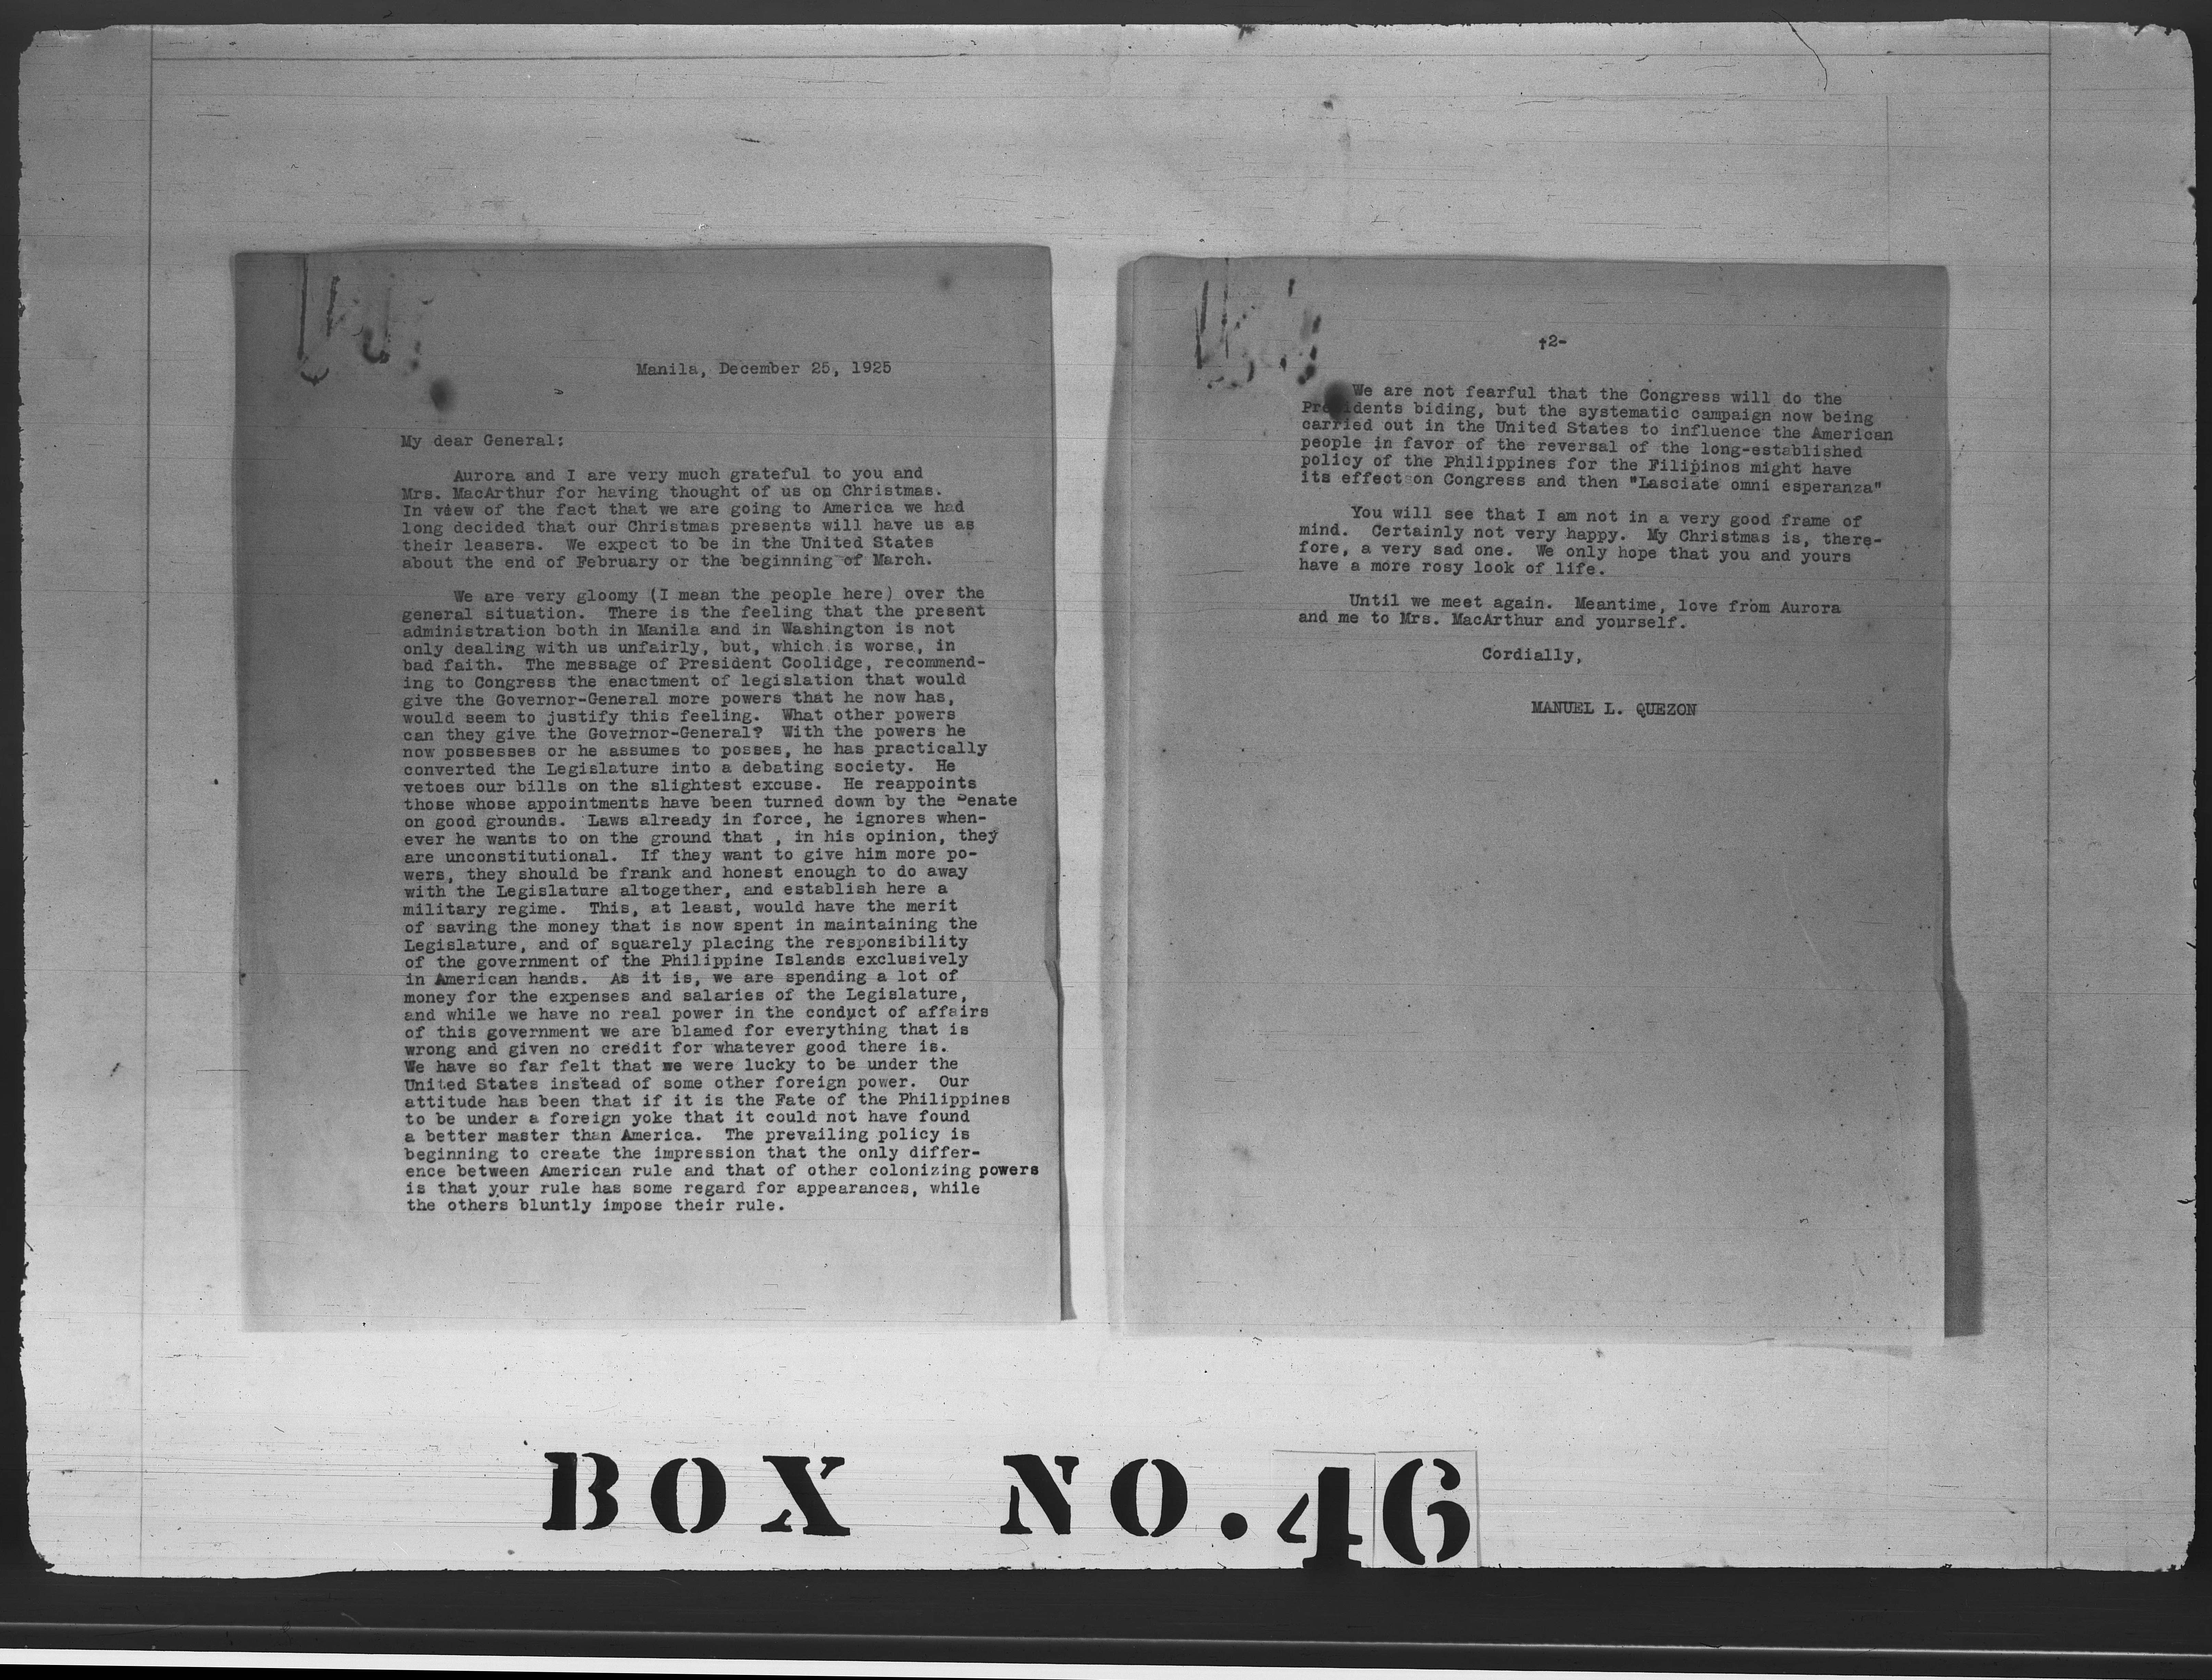 Manila, December 25, 1925
My dear General:
Aurora and I are very much grateful to you and
Mrs. MacArthur for having thought of us on Christmas.
In view of the fact that we are going to America we had
long decided that our Christmas presents will have us as
their leasers. We expect to be in the United States
about the end of February or the beginning of March.
We are very gloomy (I mean the people here) over the
general situation. There is the feeling that the present
administration both in Manila and in Washington is not
only dealing with us unfairly, but, which is worse, in
bad faith. The message of President Coolidge, recommend-
ing to Congress the enactment of legislation that would
give the Governor-General more powers that he now has,
would seem to justify this feeling. What other powers
can they give the Governor-General? With the powers he
now possesses or he assumes to posses, he has practically
converted the Legislature into a debating society. He
vetoes our bills on the slightest excuse. He reappoints
those whose appointments have been turned down by the Senate
on good grounds. Laws already in force, he ignores when-
ever he wants to on the ground that , in his opinion, they
are unconstitutional. If they want to give him more po-
wers, they should be frank and honest enough to do away
with the Legislature altogether, and establish here a
military regime. This, at least, would have the merit
of saving the money that is now spent in maintaining the
Legislature, and of squarely placing the responsibility
of the government of the Philippine Islands exclusively
in American hands. As it is, we are spending a lot of
money for the expenses and salaries of the Legislature,
and while we have no real power in the conduct of affairs
of this government we are blamed for everything that is
wrong and given no credit for whatever good there is.
We have so far felt that we were lucky to be under the
United States instead of some other foreign power. Our
attitude has been that if it is the Fate of the Philippines
to be under a foreign yoke that it could not have found
a better master than America. The prevailing policy is
beginning to create the impression that the only differ-
ence between American rule and that of other colonizing powers
is that your rule has some regard for appearances, while
the others bluntly impose their rule.
-2-
We are not fearful that the Congress will do the
Presidents biding, but the systematic campaign now being
carried out in the United States to influence the American
people in favor of the reversal of the long-established
policy of the Philippines for the Filipinos might have
its effect on Congress and then "Lasciate omni esperanza"
You will see that I am not in a very good frame of
mind. Certainly not very happy. My Christmas is, there-
fore, a very sad one. We only hope that you and yours
have a more rosy look of life.
Until we meet again. Meantime, love from Aurora
and me to Mrs. MacArthur and yourself.
Cordially,
MANUEL L. QUEZON
BOX NO. 46